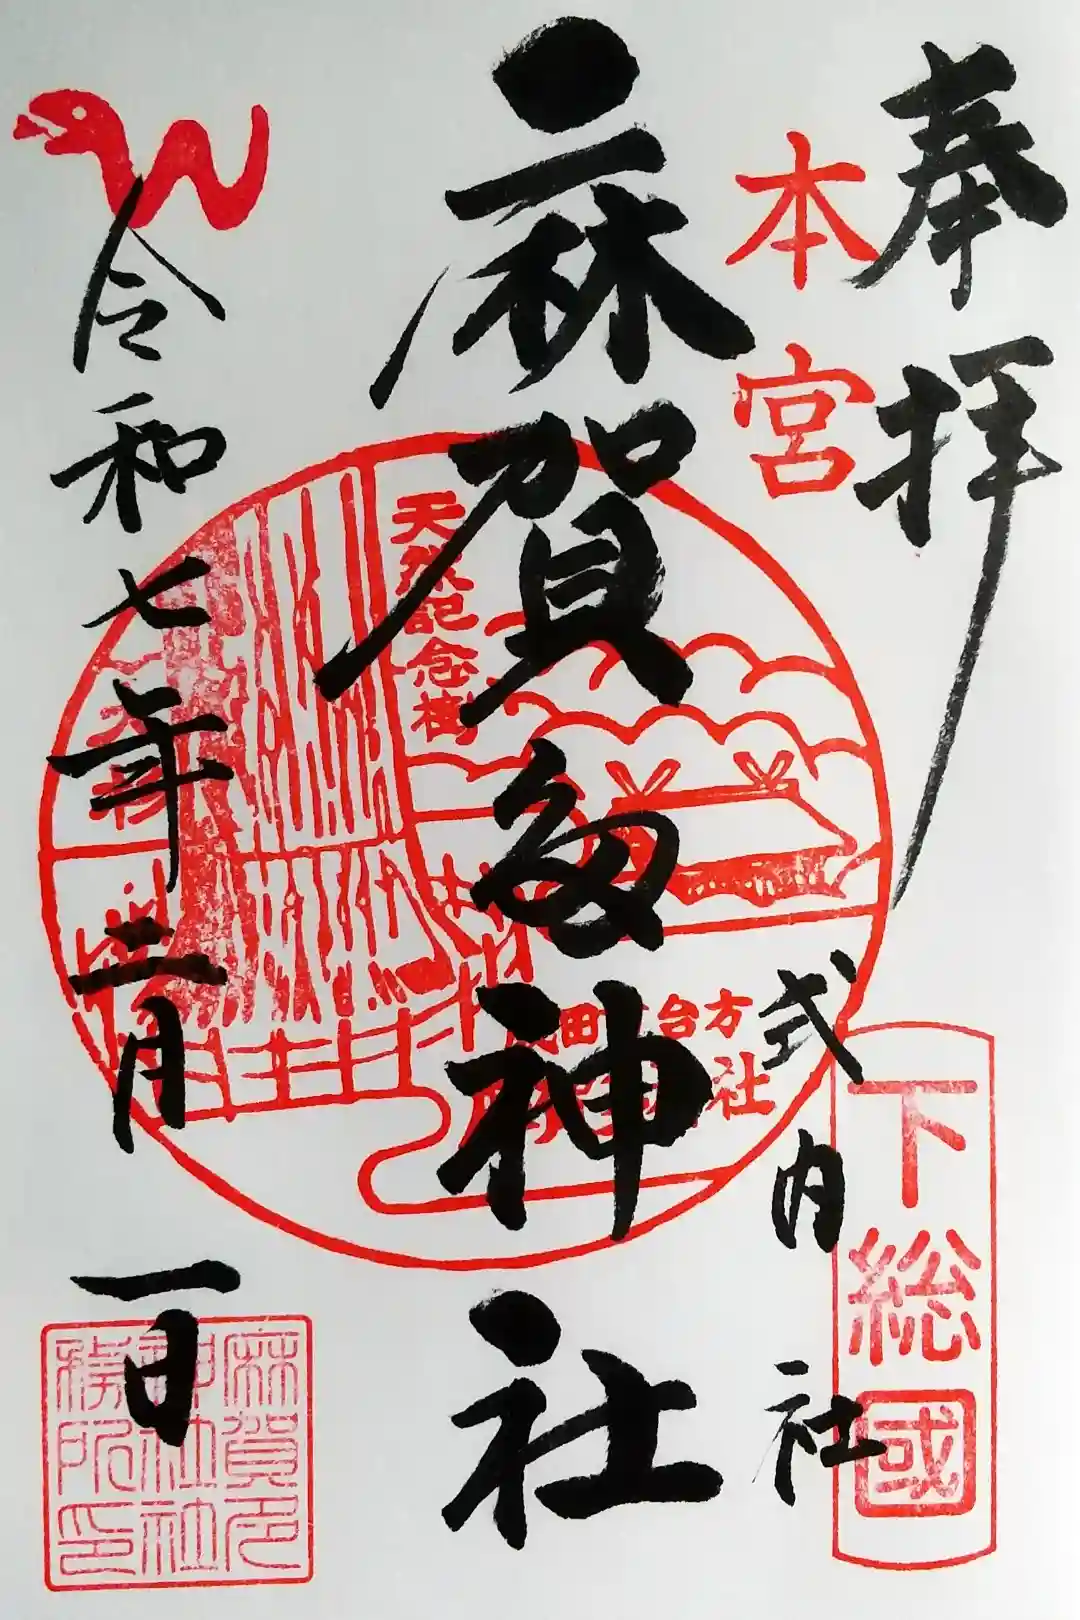 奉拝
本宮
式内社
下総國
麻賀多神社
天然記念樹
大杉
成田市台方
麻賀多神社
令和七年二月一日
麻賀多
神社社
務所印